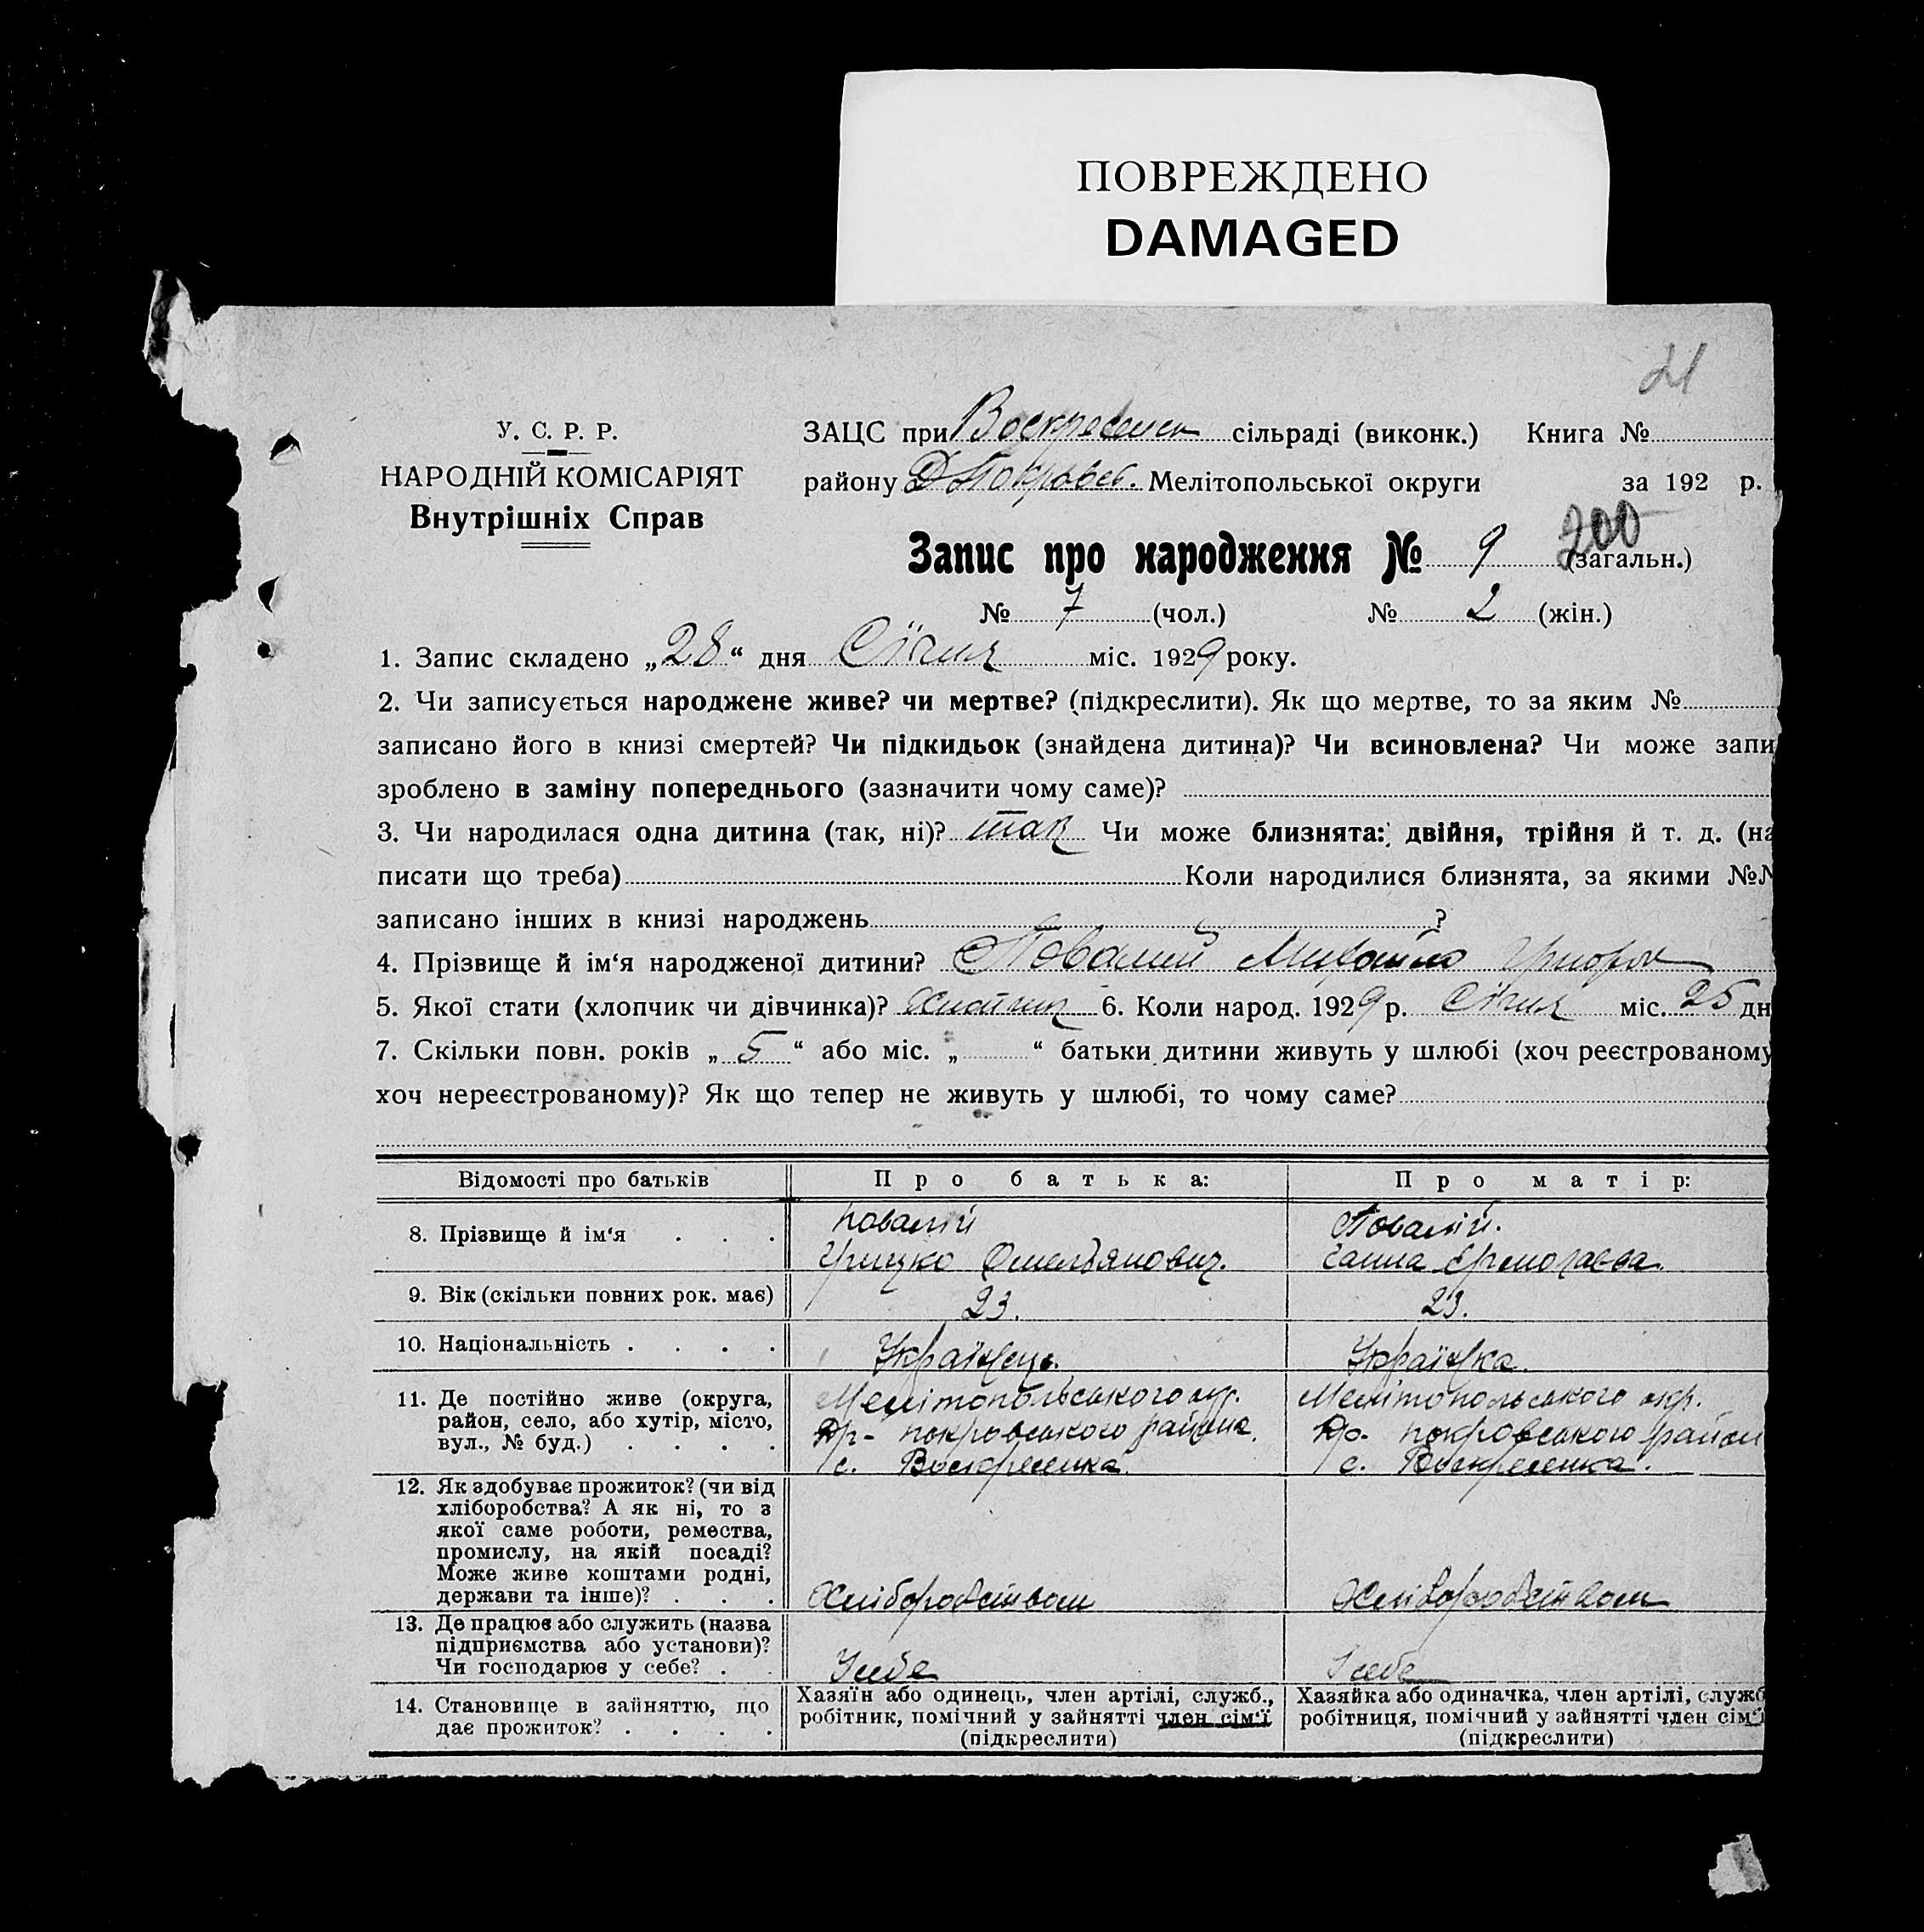 ПОВРЕЖДЕНО
DAMAGED
21
У. С. Р. Р.
НАРОДНІЙ КОМІСАРІЯТ
Внутрішніх Справ
ЗАЦС при Воскресенск сільраді (виконк.) Книга №
району Д Покровс. Мелітопольської округи за 192 р.
200
Запис про народження № 9 (загальн.)
№ 7 (чол.) № 2 (жін.)
1. Запис складено „28“ дня Січня міс. 1929 року.
2. Чи записується народжене живе? чи мертве? (підкреслити). Як що мертве, то за яким №
записано його в книзі смертей? Чи підкидьок (знайдена дитина)? Чи всиновлена? Чи може запи
зроблено в заміну попереднього (зазначити чому саме)?
3. Чи народилася одна дитина (так, ні)? так Чи може близнята: двійня, трійня й т. д. (на
писати що треба) Коли народилися близнята, за якими №№
записано інших в книзі народжень ?
4. Прізвище й ім‘я народженої дитини? Повалий Михайло
5. Якої стати (хлопчик чи дівчинка)? 6. Коли народ. 1929 р. Січня міс. 25 дн
7. Скільки повн. років „5“ або міс. „ “ батьки дитини живуть у шлюбі (хоч реєстрованому
хоч нереєстрованому)? Як що тепер не живуть у шлюбі, то чому саме?
Відомості про батьків
Про батька:
Про матір:
8. Прізвище й ім‘я . . .
Повалій
Грицко Омельянович.
Повалій.
Ганна Єрмолаєва.
9. Вік (скільки повних рок. має)
23.
23.
10. Національність . . . .
Українець.
Українка.
11. Де постійно живе (округа,
район, село, або хутір, місто,
вул., № буд.) . . . .
Мелітопольського окр.
Др- покровського района.
с. Воскресенка.
Мелітопольського окр.
Др- покровського район
с. Воскресенка.
12. Як здобуває прожиток? (чи від
хліборобства? А як ні, то з
якої саме роботи, ремества,
промислу, на якій посаді?
Може живе коштами родні,
держави та інше)? . . .
Хліборобством
Хліборобством
13. Де працює або служить (назва
підприємства або установи)?
Чи господарює у себе? . .
У себе
У себе
14. Становище в зайняттю, що
дає прожиток? . . . .
Хазяїн або одинець, член артілі, служб.,
робітник, помічний у зайнятті член сім‘ї
(підкреслити)
Хазяйка або одиначка, член артілі, служб
робітниця, помічний у зайнятті член сім‘ї
(підкреслити)